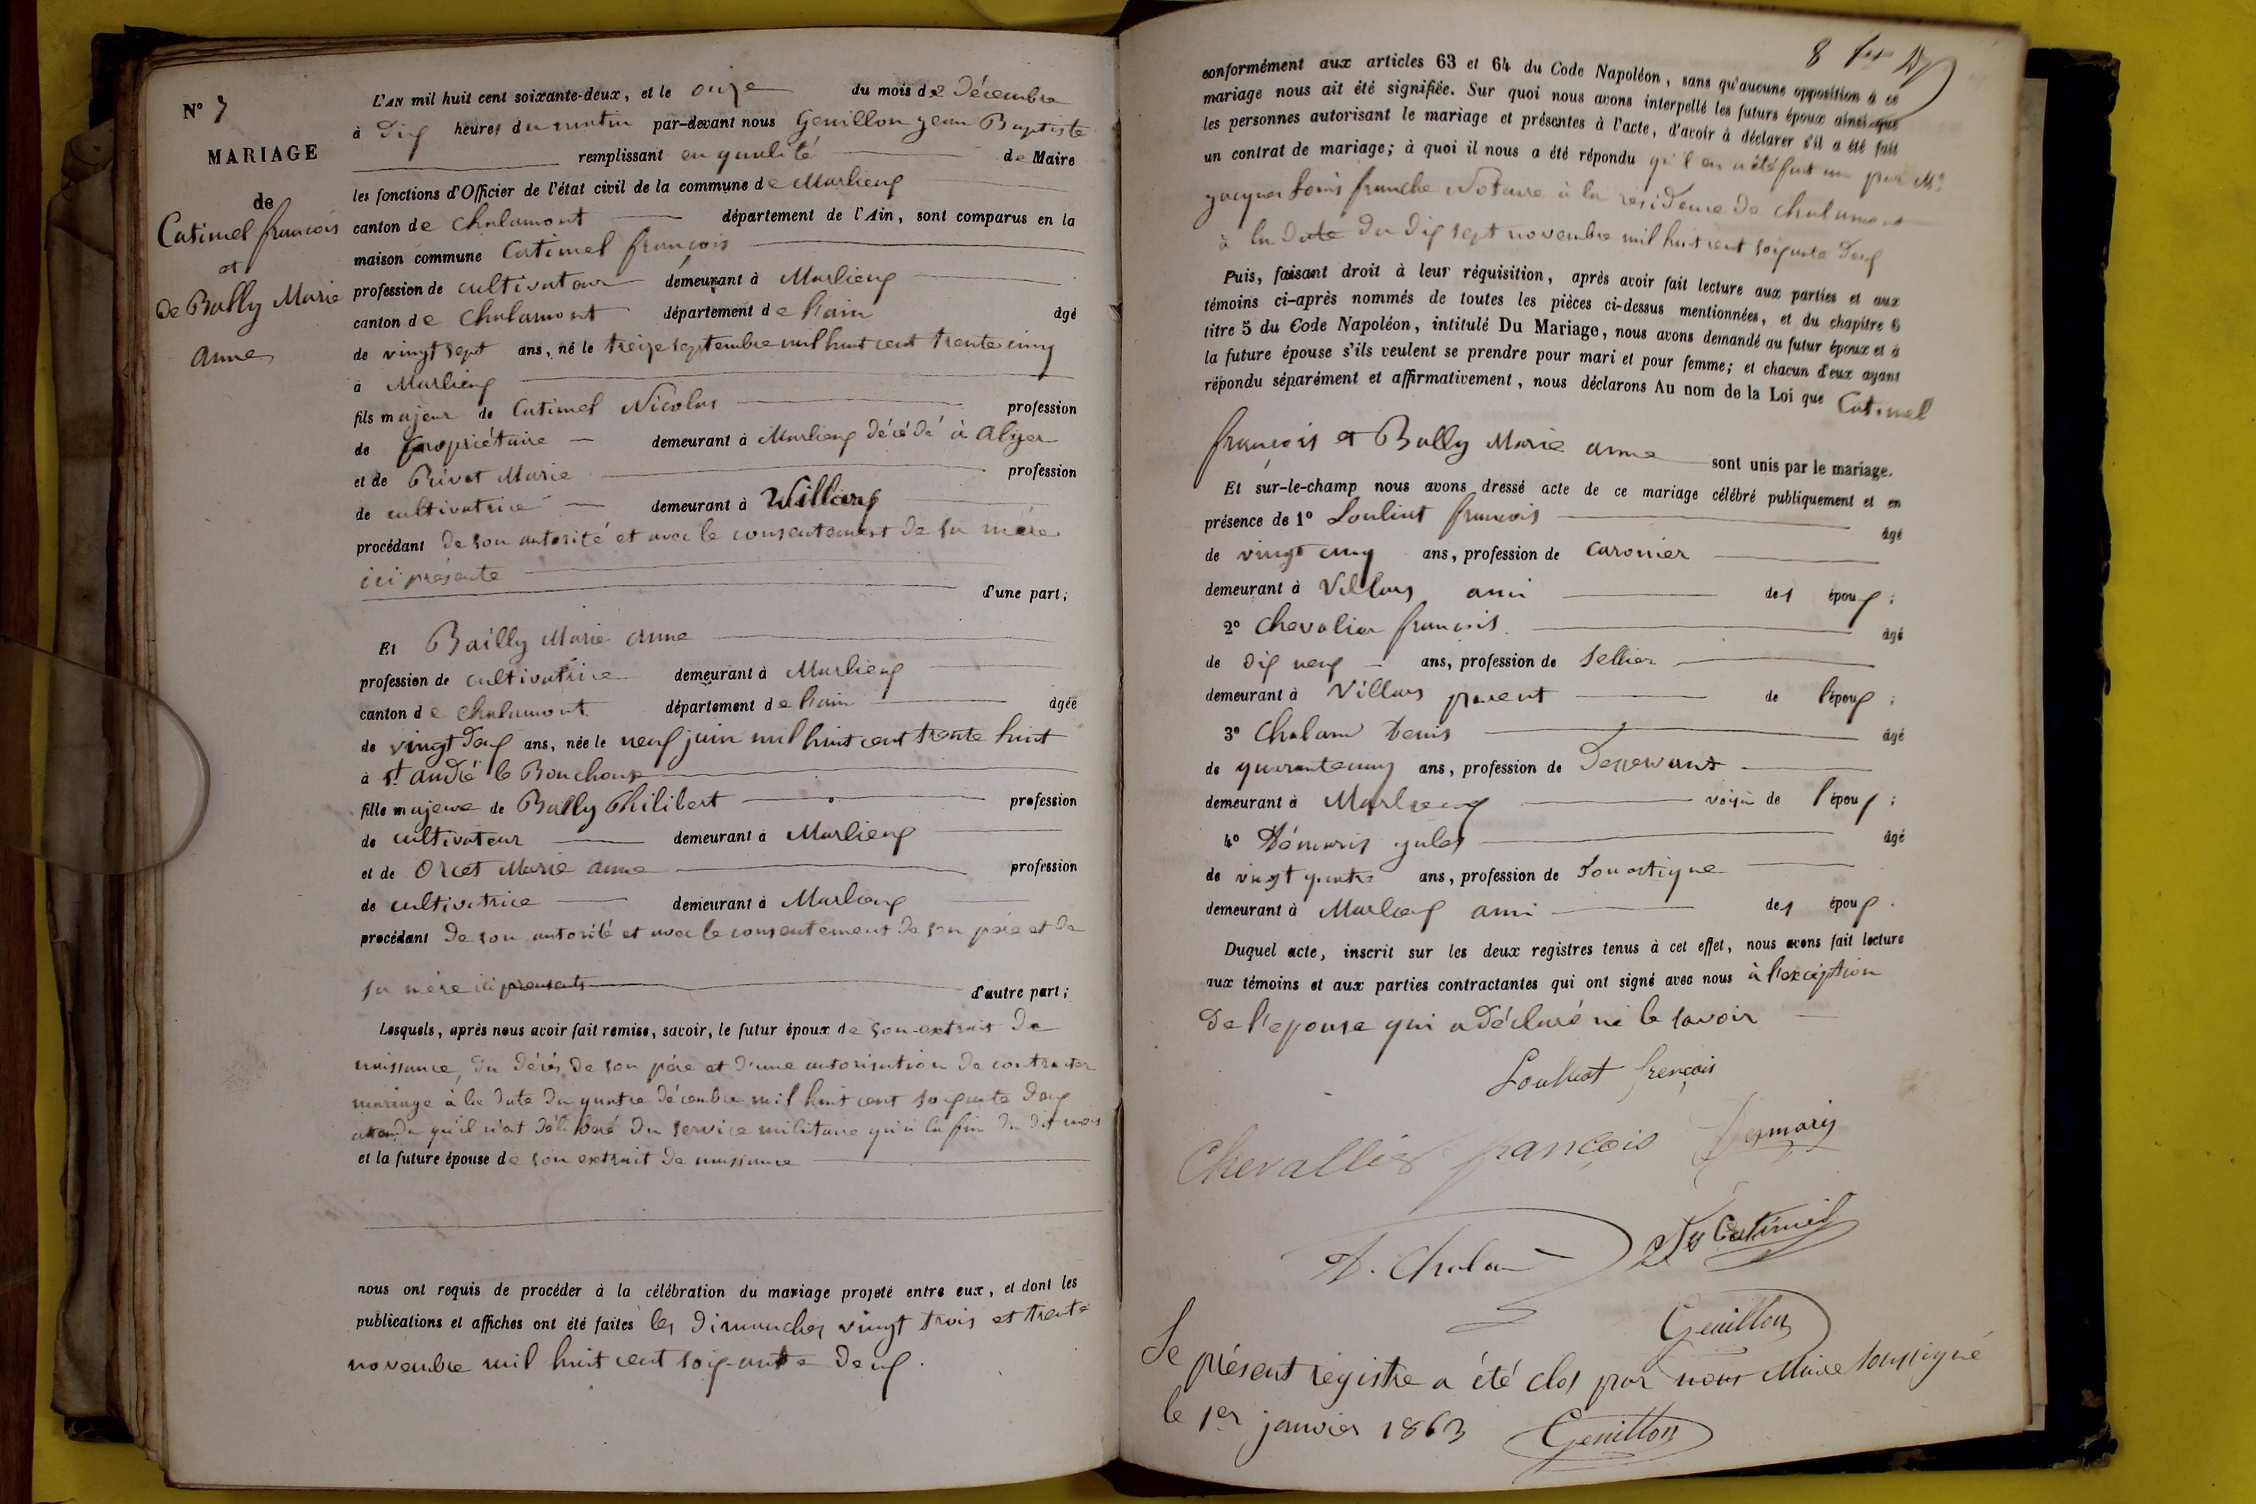 N° 7
MARIAGE
de
Catimel françois
et
de Bally Marie
anne
L'AN mil huit cent soixante-deux, et le onze du mois de Décembre
à dix heures du matin par-devant nous Genillon jean Baptiste
remplissant en qualité de Maire
les fonctions d'Officier de l'état civil de la commune de Marlieux
canton de chalamont département de l'Ain, sont comparus en la
maison commune Catimel françois
profession de cultivateur demeurant à Marlieux
canton de chalamont département de l'ain âgé
de vingt sept ans, né le treize septembre mil huit cent trente cinq
à Marlieux
fils majeur de Catimel Nicolas profession
de propriétaire demeurant à Marlieux décédé à alger
et de Privat Marie profession
de cultivatrice demeurant à Villars
procédant de son autorité et avec le consentement de sa mère
ici présente
d'une part;
Et Bailly Marie anne
profession de cultivatrice demeurant à Marlieux
canton de chalamont département de l'ain âgée
de vingt deux ans, née le neuf juin mil huit cent trente huit
à St andré le Bouchoux
fille majeure de Bally Philibert profession
de cultivateur demeurant à Marlieux
et de Orcet Marie anne profession
de cultivatrice demeurant à Marlieux
procédant de son autorité et avec le consentement de son père et de
sa mère ici présents
d'autre part;
Lesquels, après nous avoir fait remise, savoir, le futur époux de son extrait de
naissance, du décès de son père et d'une autorisation de contracter
mariage à la date du quatre décembre mil huit cent soixante deux
attendu qu'il n'est délibéré du service militaire qu'à la fin du dit mois
et la future épouse de son extrait de naissance
nous ont requis de procéder à la célébration du mariage projeté entre eux, et dont les
publications et affiches ont été faites les dimanches vingt trois et trente
novembre mil huit cent soixante deux.
8
conformément aux articles 63 et 64 du Code Napoléon, sans qu'aucune opposition à ce
mariage nous ait été signifiée. Sur quoi nous avons interpellé les futurs époux ainsi que
les personnes autorisant le mariage et présentes à l'acte, d'avoir à déclarer s'il a été fait
un contrat de mariage; à quoi il nous a été répondu qu'il en a été fait un par Me
jacques Louis franche Notaire à la résidence de chalamont
à la date du dix sept novembre mil huit cent soixante deux
Puis, faisant droit à leur réquisition, après avoir fait lecture aux parties et aux
témoins ci-après nommés de toutes les pièces ci-dessus mentionnées, et du chapitre 6
titre 5 du Code Napoléon, intitulé Du Mariage, nous avons demandé au futur époux et à
la future épouse s'ils veulent se prendre pour mari et pour femme; et chacun d'eux ayant
répondu séparément et affirmativement, nous déclarons Au nom de la Loi que Catimel
françois et Bally Marie anne sont unis par le mariage.
Et sur-le-champ nous avons dressé acte de ce mariage célébré publiquement et en
présence de 1° Louliat françois âgé
de vingt cinq ans, profession de caronier
demeurant à Villars ami des époux;
2° chevalier françois âgé
de dix neuf ans, profession de sellier
demeurant à Villars parent de l'époux;
3° Chalam Denis âgé
de quarante cinq ans, profession de Desservant
demeurant à Marlieux voisin de l'époux;
4° Démaris jules âgé
de vingt quatre ans, profession de Domestique
demeurant à Marlieux ami des époux.
Duquel acte, inscrit sur les deux registres tenus à cet effet, nous avons fait lecture
aux témoins et aux parties contractantes qui ont signé avec nous à l'exception
de l'epouse qui a déclaré ne le savoir
Louliat françois
Chevallier françois Desmaris
D. Chalam Catimel
Genillon
Le présent registre a été clos par nous Maire soussigné
le 1er janvier 1863 Genillon